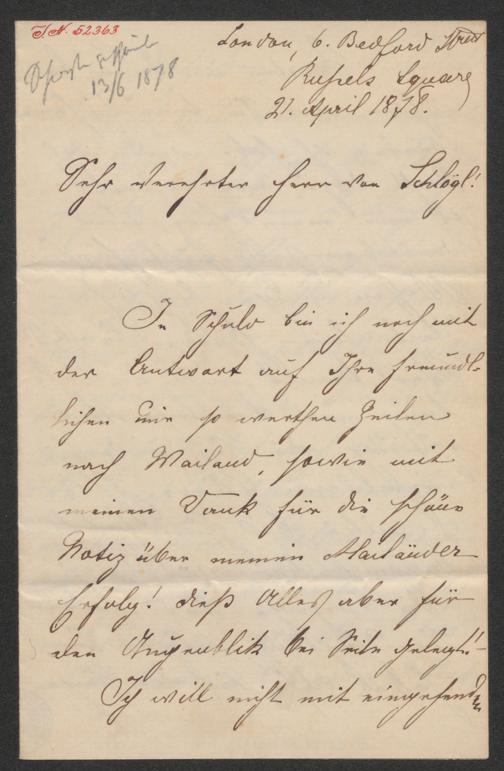 I.N. 52363
13/6 1878
London, 6. Bedford Street
Russels Square
21. April 1878.
Sehr verehrter Herr von Schlögl!
In Schuld bin ich noch mit
der Antwort auf Ihre freund-
lichen mir so werthen Zeilen
nach Mailand, sowie mit
meinem Dank für die schöne
Notiz über meinen Mailänder
Erfolg! dieß Alles aber für
den Augenblick bei Seite gelegt! –
Ich will nicht mit eingehend